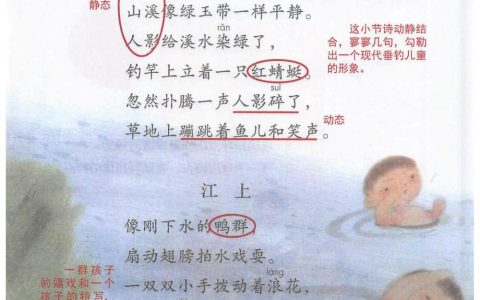 静态
山溪像绿玉带一样平静。
rǎn
人影给溪水染绿了，
钓竿上立着一只红蜻蜓。
suì
忽然扑腾一声人影碎了，
草地上蹦跳着鱼儿和笑声。
动态
这小节诗动静结
合，寥寥几句，勾勒
出一个现代垂钓儿童
的形象。
江上
像刚下水的鸭群，
扇动翅膀拍水戏耍。
láng
一双双小手拨动着浪花，
一群孩子
的嬉戏和一个
孩子的特写，